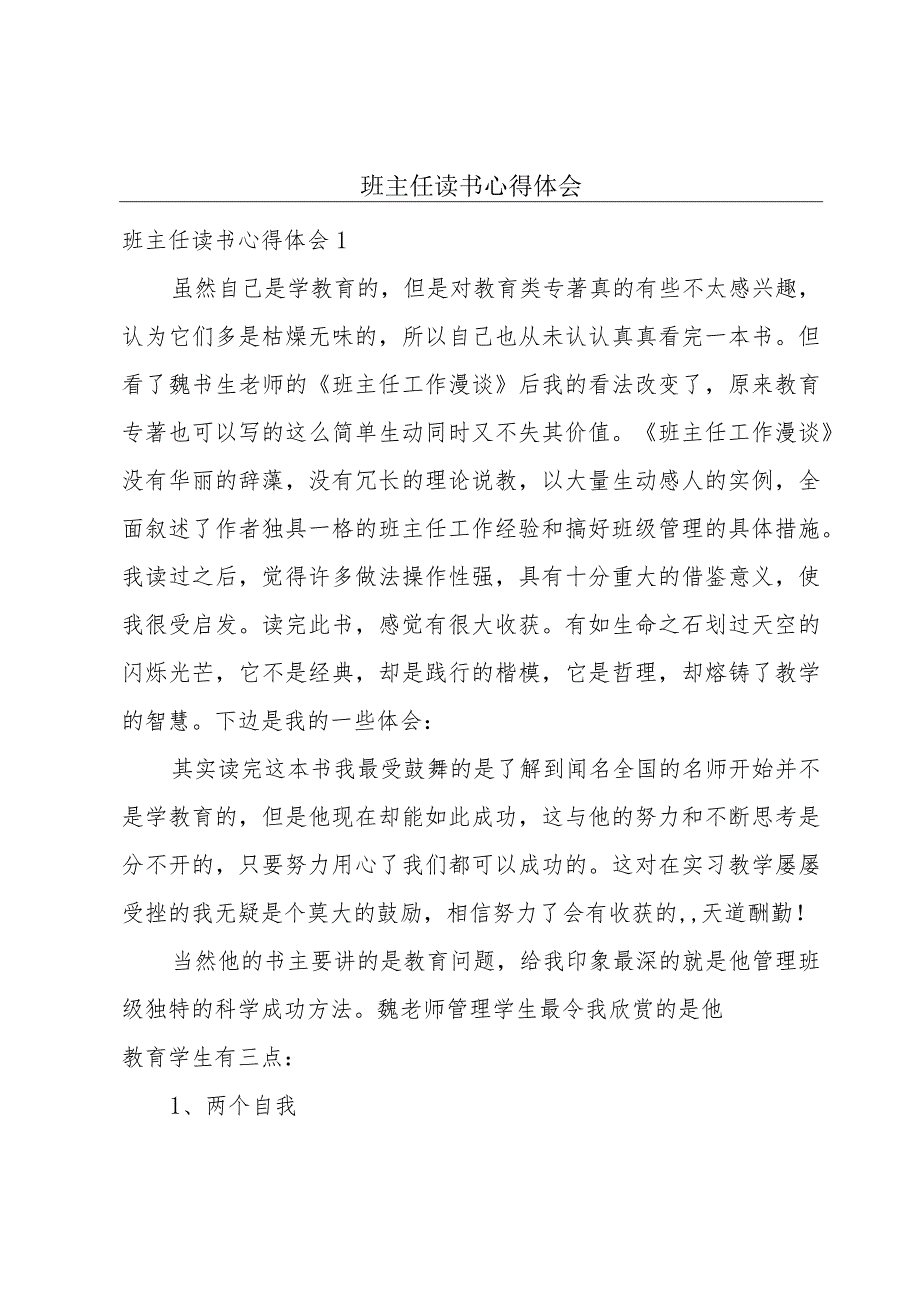 班主任读书心得体会
班主任读书心得体会1
虽然自己是学教育的，但是对教育类专著真的有些不太感兴趣，
认为它们多是枯燥无味的，所以自己也从未认认真真看完一本书。但
看了魏书生老师的《班主任工作漫谈》后我的看法改变了，原来教育
专著也可以写的这么简单生动同时又不失其价值。《班主任工作漫谈》
没有华丽的辞藻，没有冗长的理论说教，以大量生动感人的实例，全
面叙述了作者独具一格的班主任工作经验和搞好班级管理的具体措施。
我读过之后，觉得许多做法操作性强，具有十分重大的借鉴意义，使
我很受启发。读完此书，感觉有很大收获。有如生命之石划过天空的
闪烁光芒，它不是经典，却是践行的楷模，它是哲理，却熔铸了教学
的智慧。下边是我的一些体会：
其实读完这本书我最受鼓舞的是了解到闻名全国的名师开始并不
是学教育的，但是他现在却能如此成功，这与他的努力和不断思考是
分不开的，只要努力用心了我们都可以成功的。这对在实习教学屡屡
受挫的我无疑是个莫大的鼓励，相信努力了会有收获的,,天道酬勤！
当然他的书主要讲的是教育问题，给我印象最深的就是他管理班
级独特的科学成功方法。魏老师管理学生最令我欣赏的是他
教育学生有三点：
1、两个自我